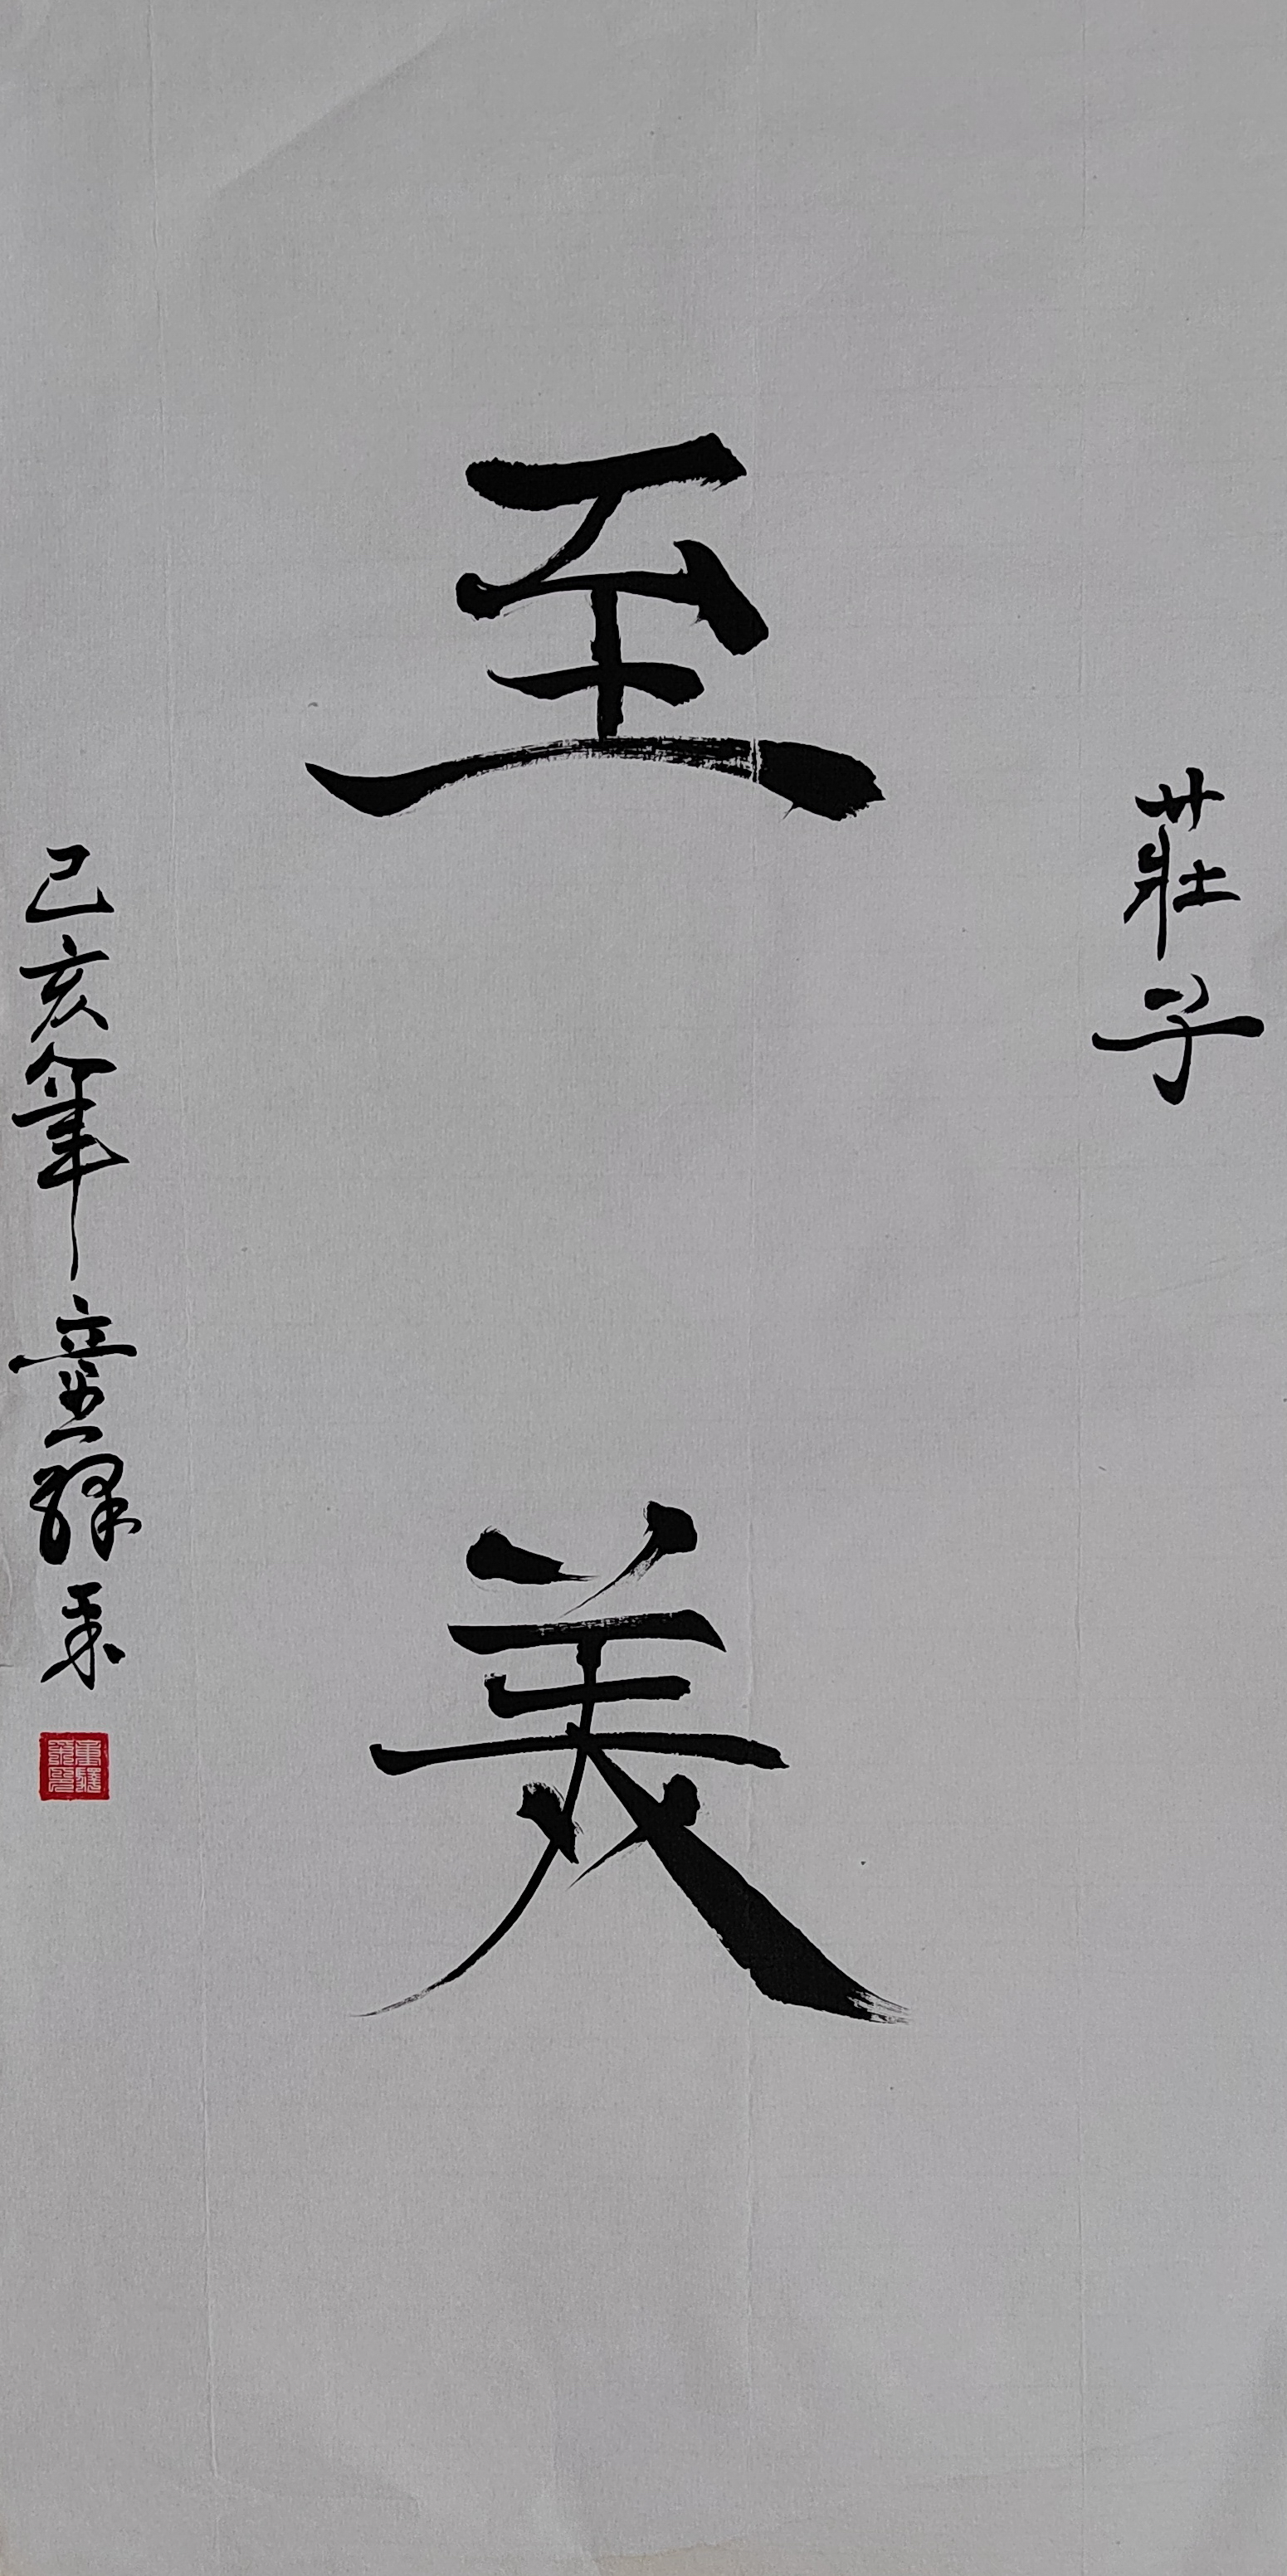 莊子
至美
己亥年